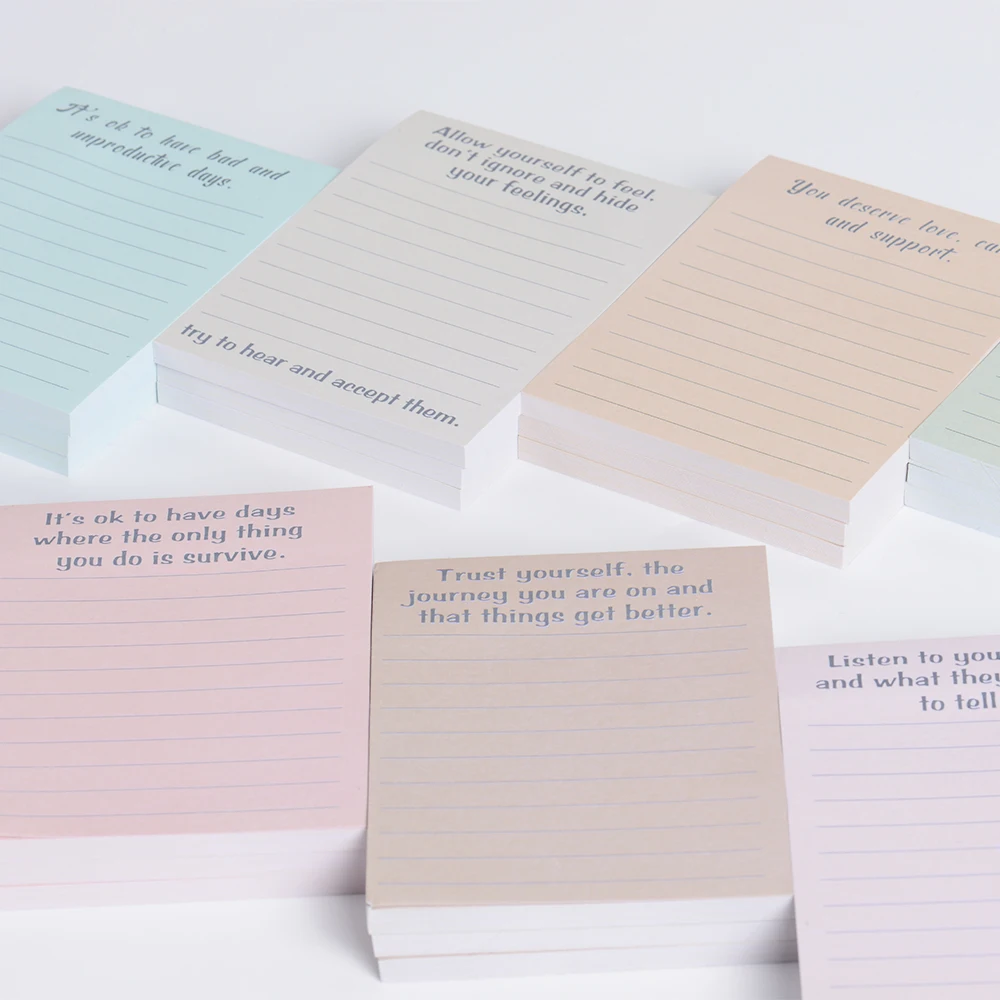 It's ok to have bad and
unproductive days.
Allow yourself to feel.
don't ignore and hide
your feelings.
try to hear and accept them.
You deserve love,
and support.
It's ok to have days
where the only thing
you do is survive.
Trust yourself. the
journey you are on and
that things get better.
Listen to
and what
to tell